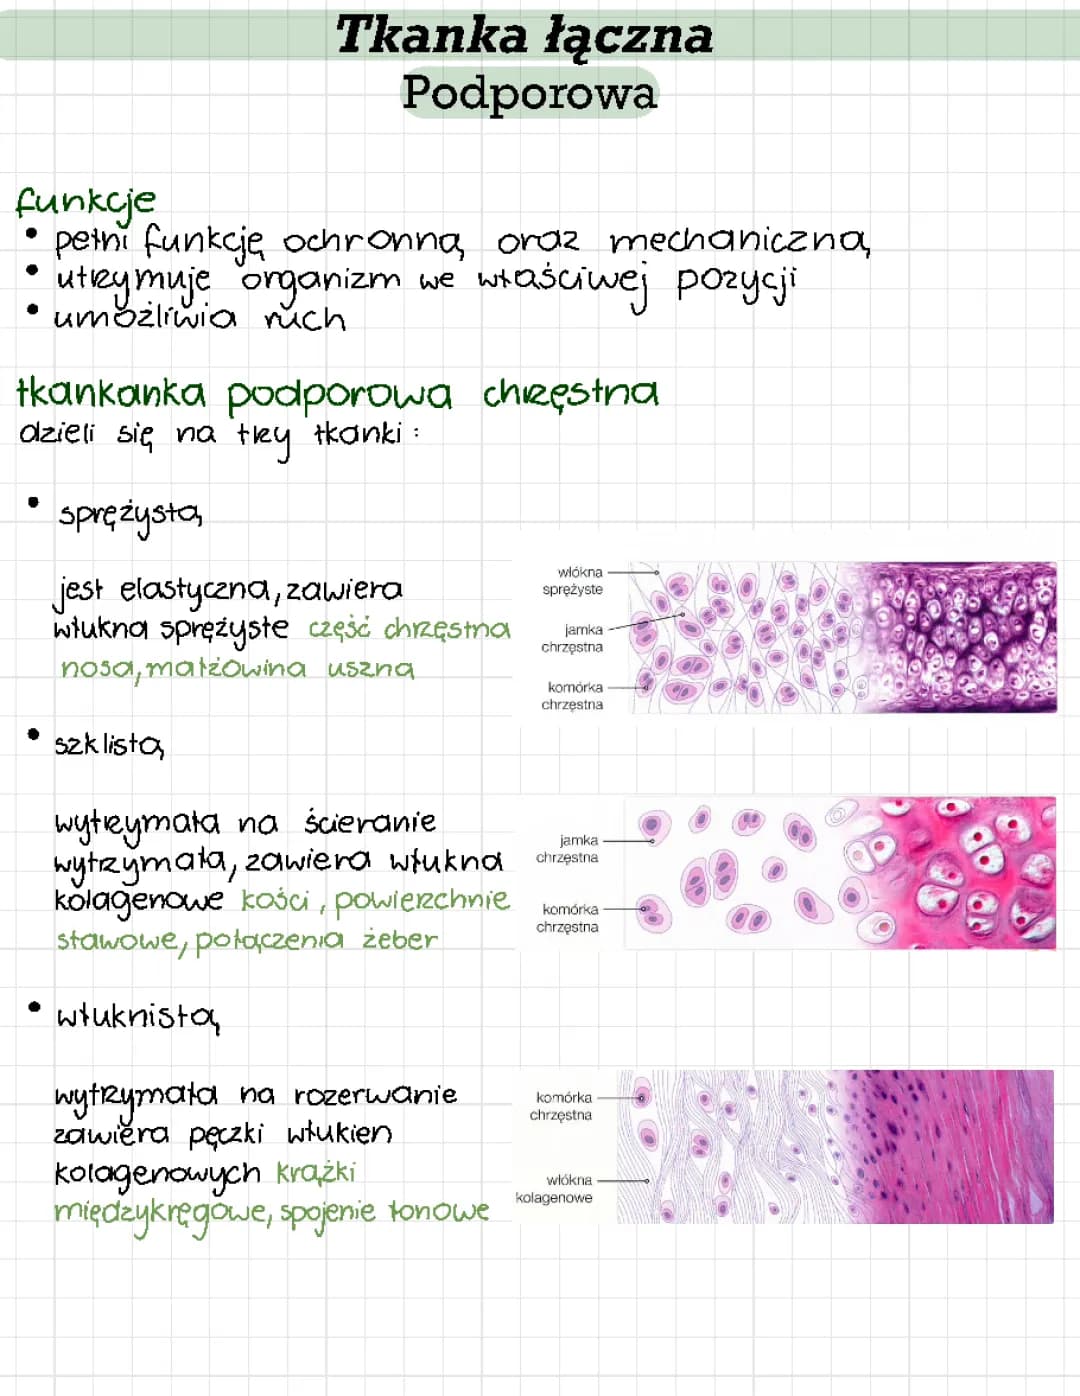 Tkanka łączna
Podporowa
funkcje
• pełni funkcję ochronną oraz mechaniczną
• utrzymuje organizm we właściwej pozycji
• umożliwia ruch
tkankanka podporowa chrzęstna
dzieli się na trzy tkanki:
• sprężystą
jest elastyczna, zawiera
włukna sprężyste część chrzęstna
nosa, małżowina uszna
włókna
sprężyste
jamka
chrzęstna
komórka
chrzęstna
• szklistą
wytrzymała na ścieranie
wytrzymała, zawiera włukna
kolagenowe kości, powierzchnie
stawowe, połączenia żeber
jamka
chrzęstna
komórka
chrzęstna
• włuknistą
wytrzymała na rozerwanie
zawiera pęczki włukien
kolagenowych krążki
międzykręgowe, spojenie łonowe
komórka
chrzęstna
włókna
kolagenowe